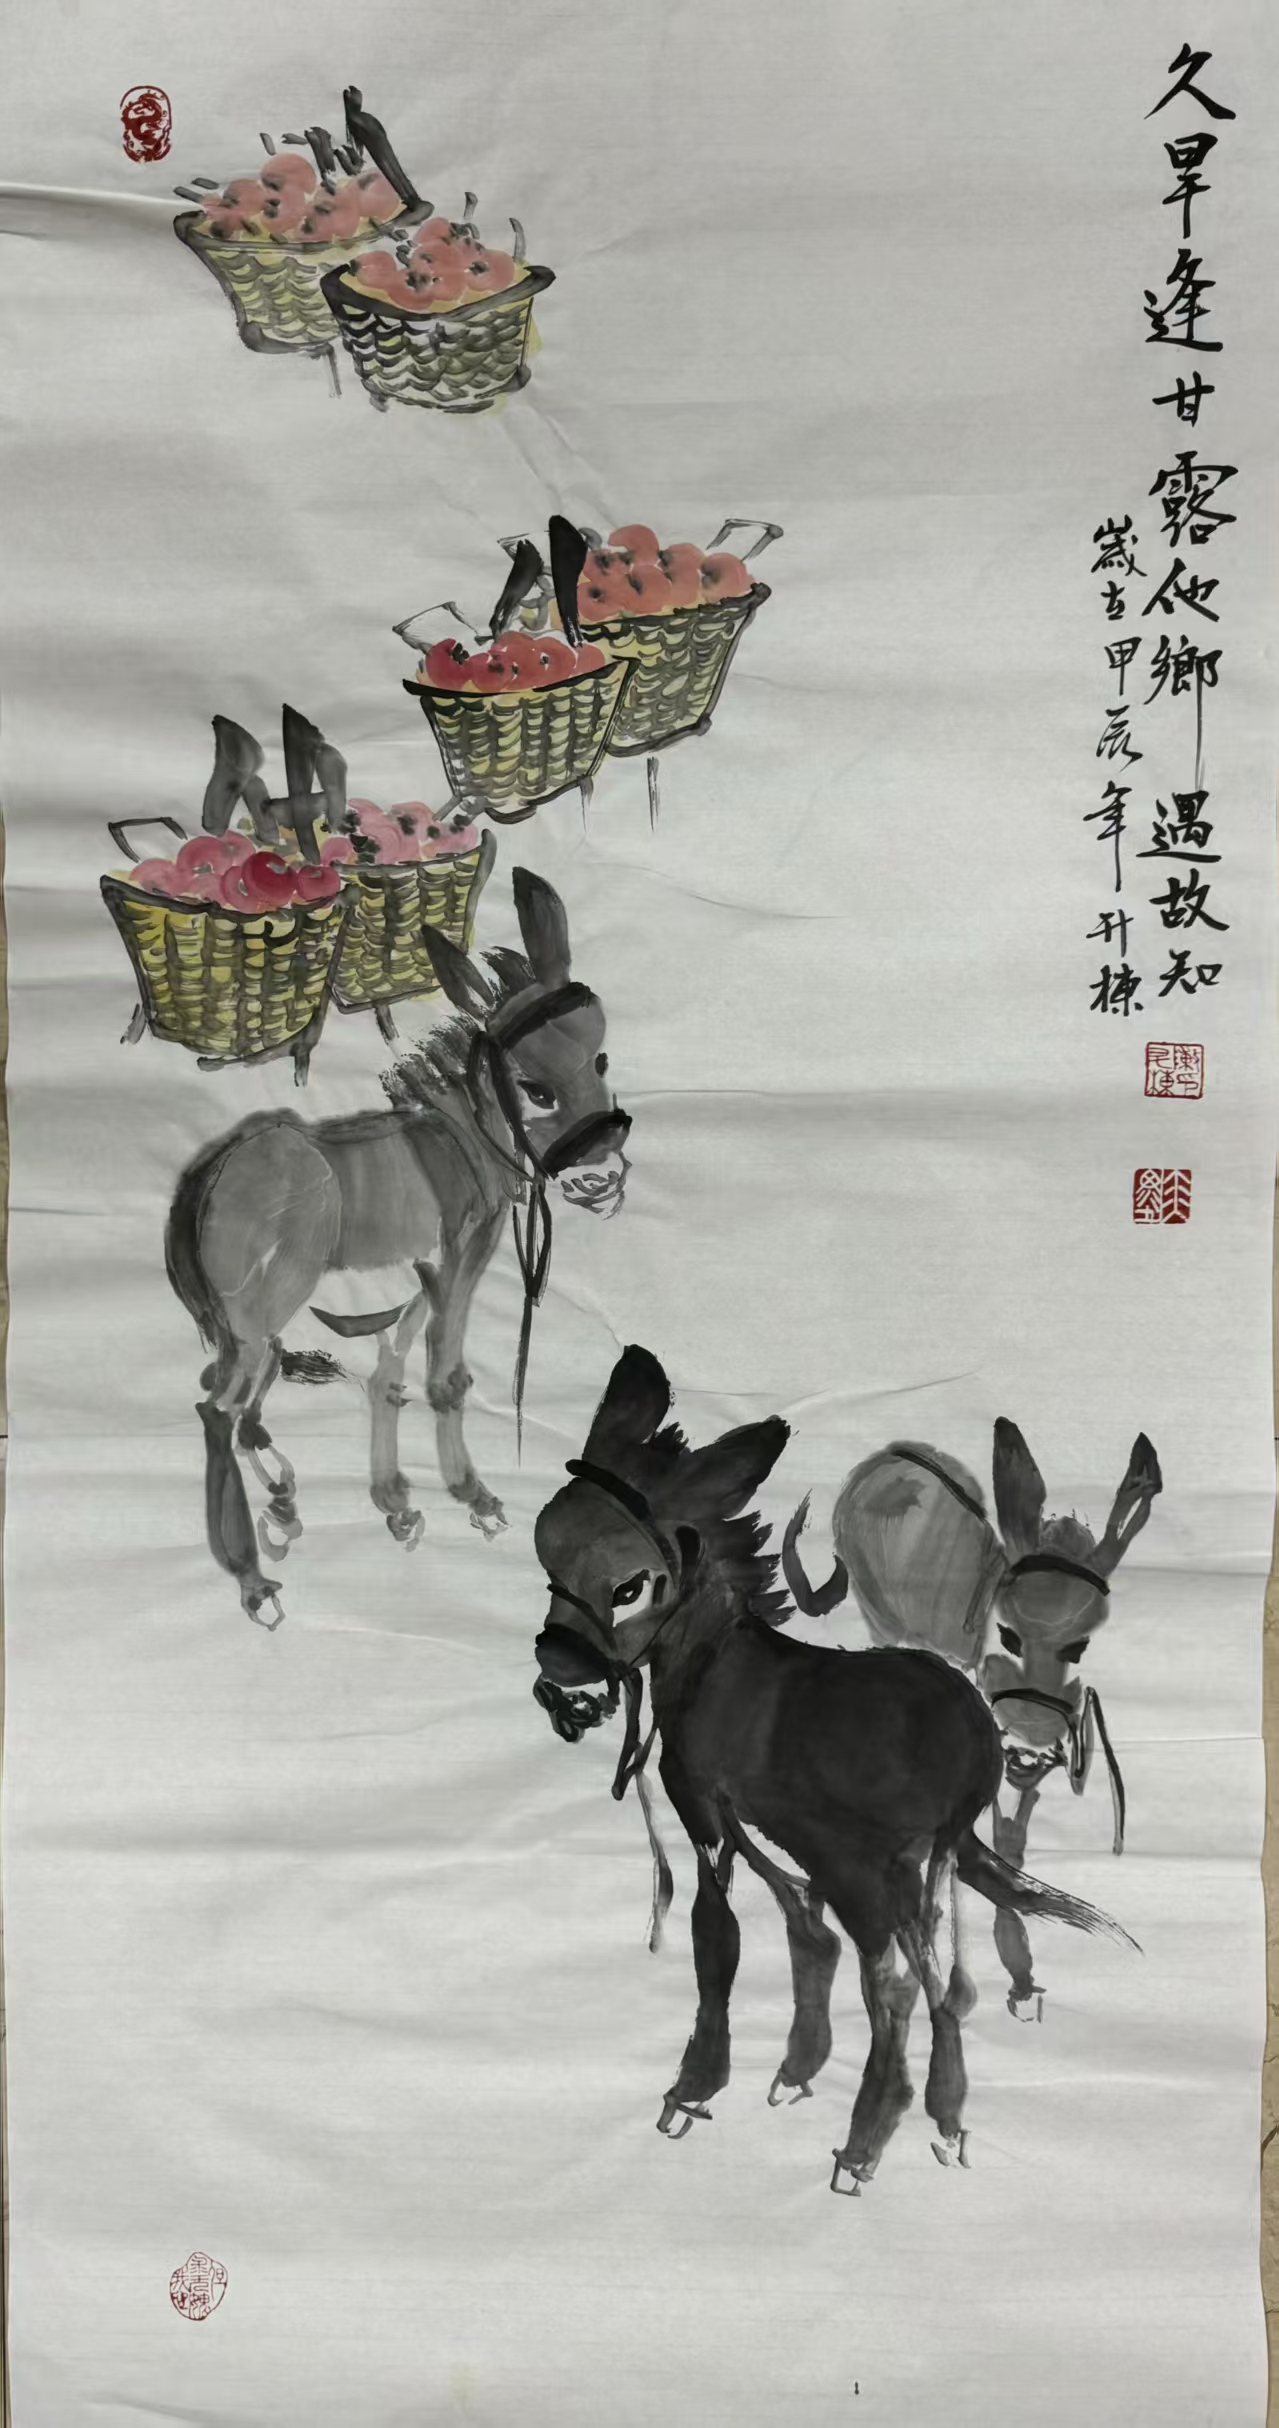 久旱逢甘露他鄉遇故知
歲在甲辰年升棟